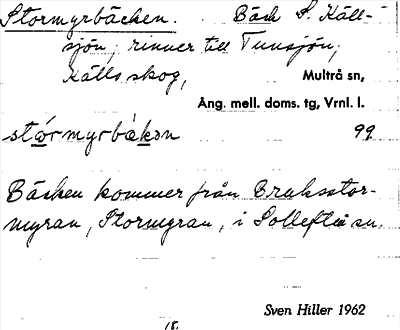 Stormyrbäcken. Bäck S. Käll-
sjön; rinner till Tunsjön;
Källs skog, Multrå sn,
Ång. mell. doms. tg, Vrnl. l.
stórmyrbäkən 99
Bäcken kommer från Bruksstor-
myran, Stormyran, i Sollefteå sn.
Sven Hiller 1962
18.